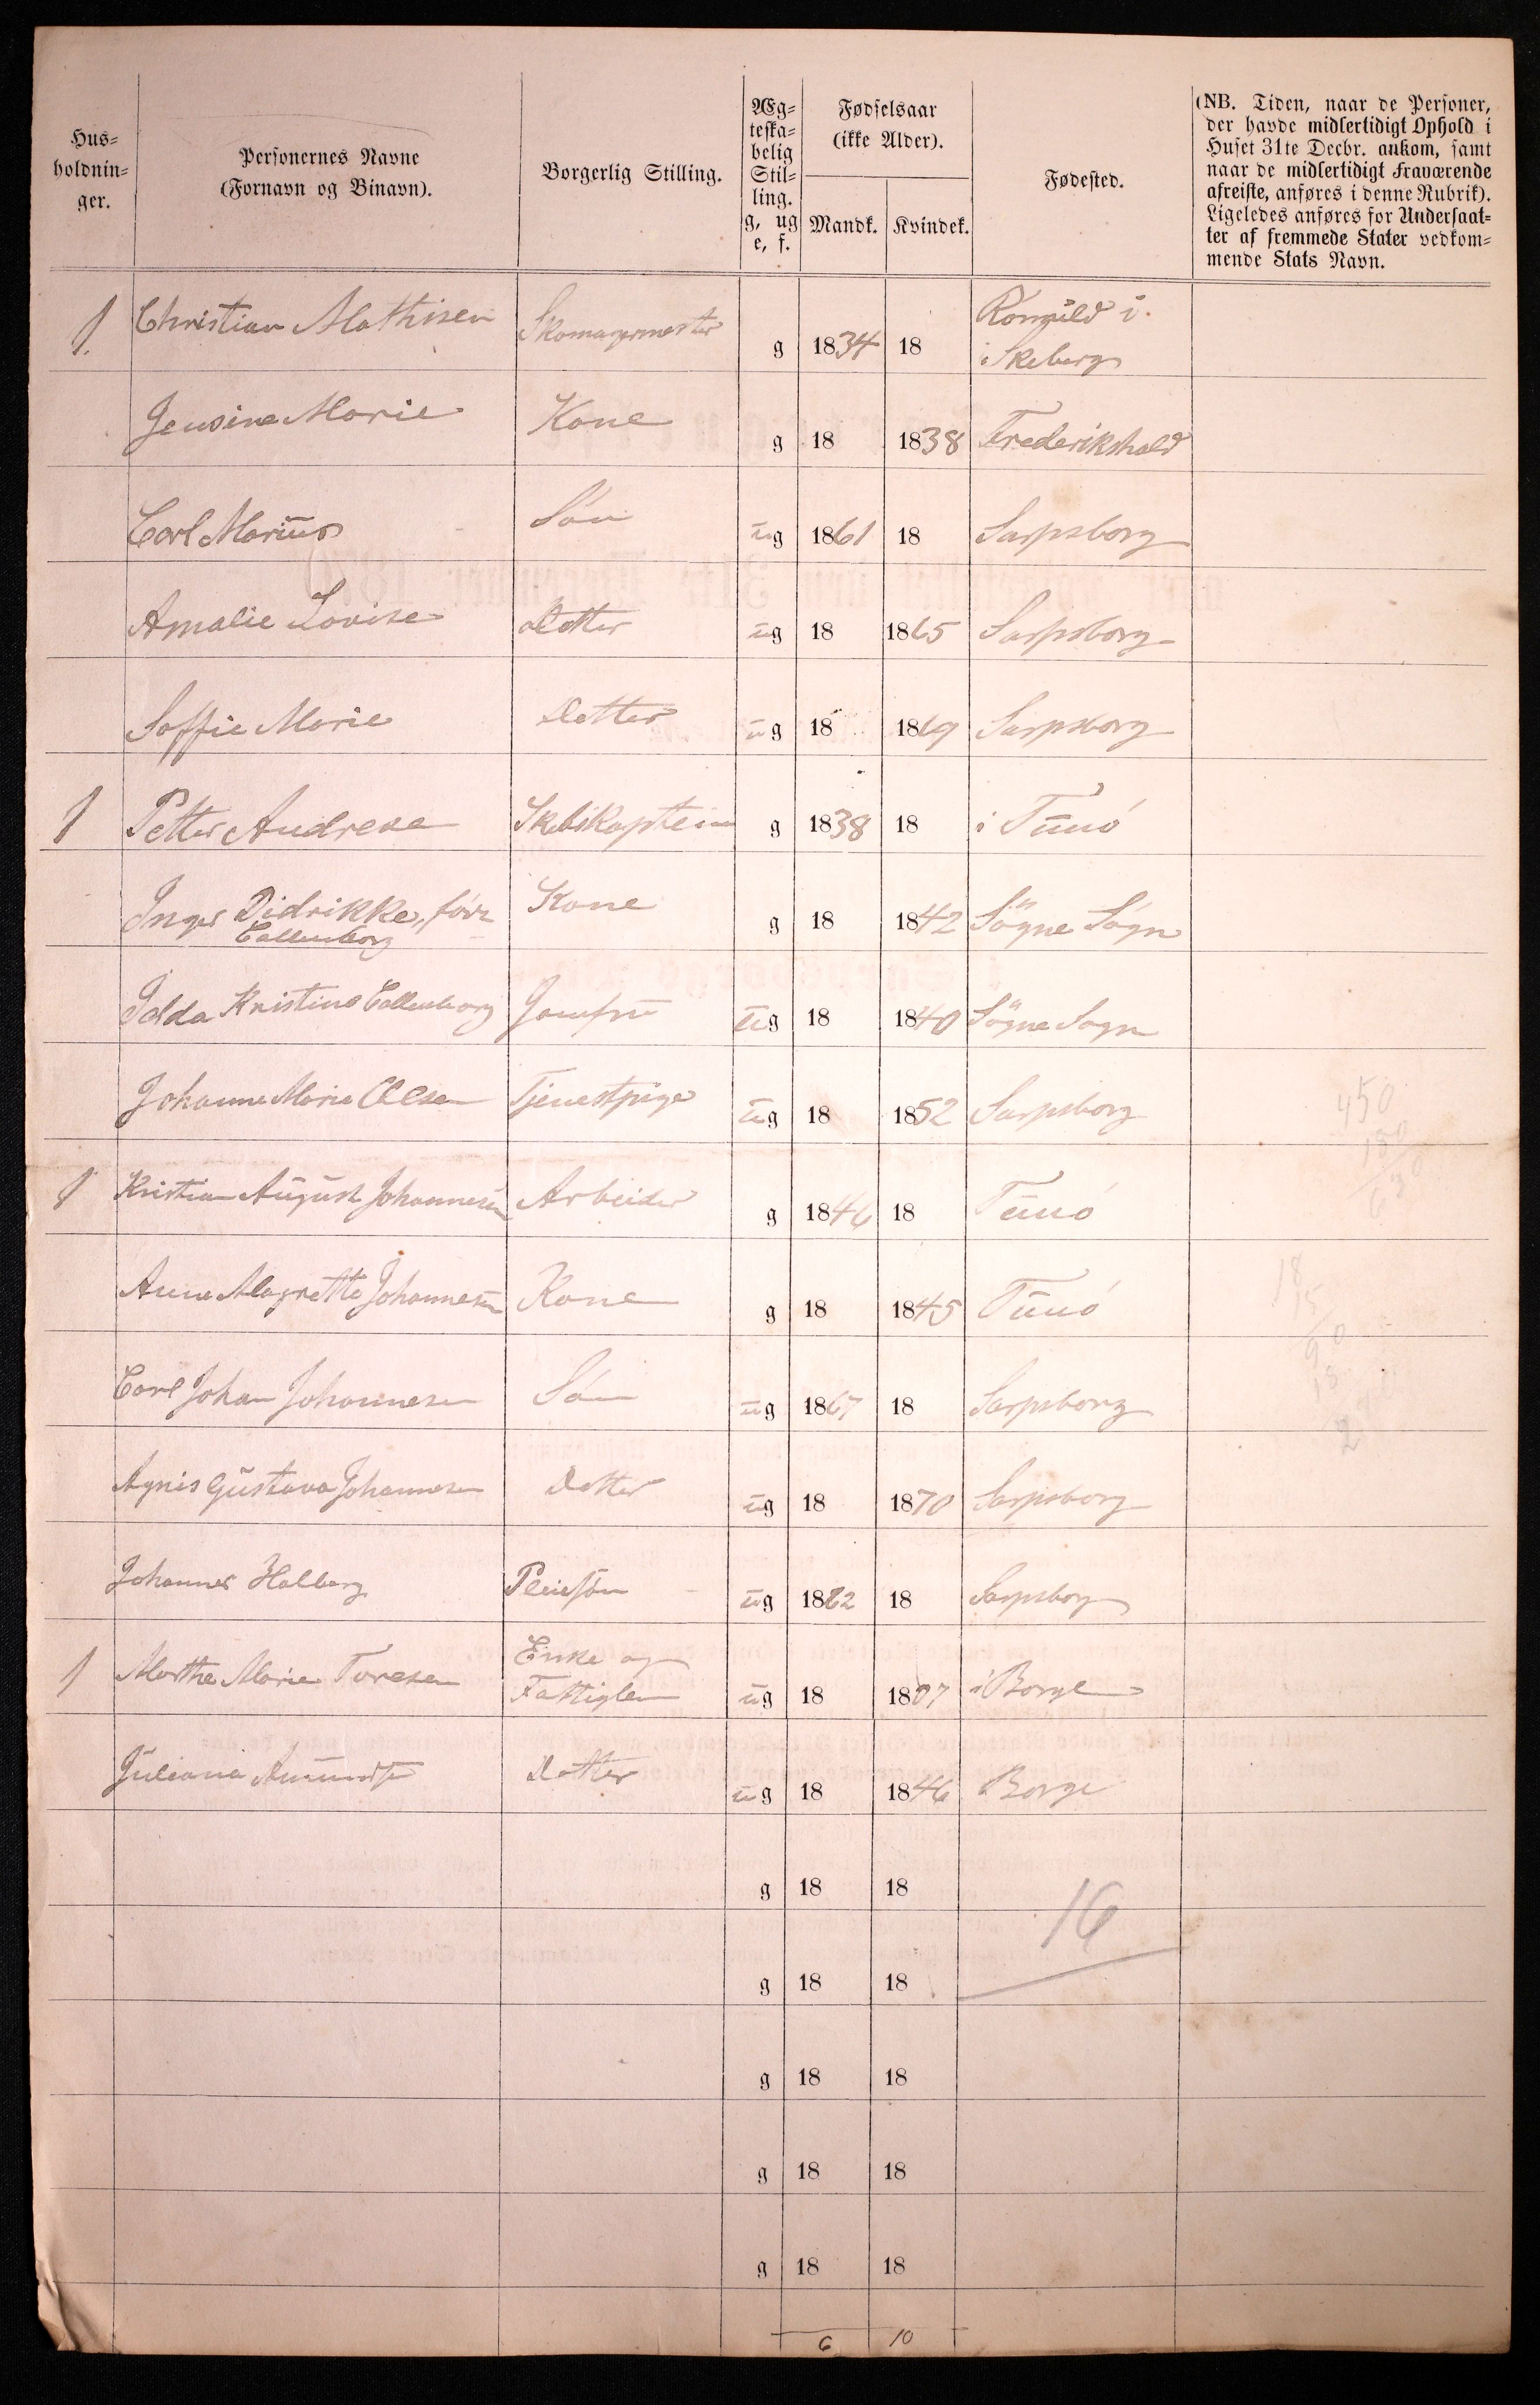 Hus=
holdnin=
ger.
Personernes Navne
(Fornavn og Binavn).
Borgerlig Stilling.
Æg=
teska=
belig
Stil=
ling.
g, ug
e, f.
Fødselsaar
(ikke Alder).
Mandk. Kvindek.
Fødested.
(NB. Tiden, naar de Personer,
der havde midlertidigt Ophold i
Huset 31te Decbr. ankom, samt
naar de midlertidigt Fraværende
afreiste, anføres i denne Rubrik).
Ligeledes anføres for Undersaat=
ter af fremmede Stater vedkom=
mende Stats Navn.
1. Christian Mathisen Skomagermester g 1834 18 i
i Skeberg
Jensine Marie Kone g 18 1838 Frederikshald
Carl Marius Sön ug 1861 18 Sarpsborg
Amalie Lovise Dotter ug 18 1865 Sarpsborg
Soffie Marie Dotter ug 18 1869 Sarpsborg
1 Petter Andrese Skibskaptein g 1838 18 i Tunö
Inger Didrikke, föd Kone g 18 1842 Sögne Sogn
Callenborg
Idda Kristine Callenborg Jomfru ug 18 1840 Sögne Sogn
Johanne Marie Olsen Tjenestpige ug 18 1852 Sarpsborg
1 Kristian August Johannesen Arbeider g 1846 18 Tunö
Anne Magrette Johannesen Kone g 18 1845 Tunö
Carl Johan Johannesen Sön ug 1867 18 Sarpsborg
Agnis Gustava Johannesen Dotter ug 18 1870 Sarpsborg
Johannes Halberg Pleiesön ug 1862 18 Sarpsborg
1 Marthe Marie Toresen Enke og
Fattiglem ug 18 1807 i Borge
Juliana Amundsen Dotter ug 18 1846 Borge
g 18 18
16
g 18 18
g 18 18
g 18 18
g 18 18
6 10
450
180
630
18
15
90
18